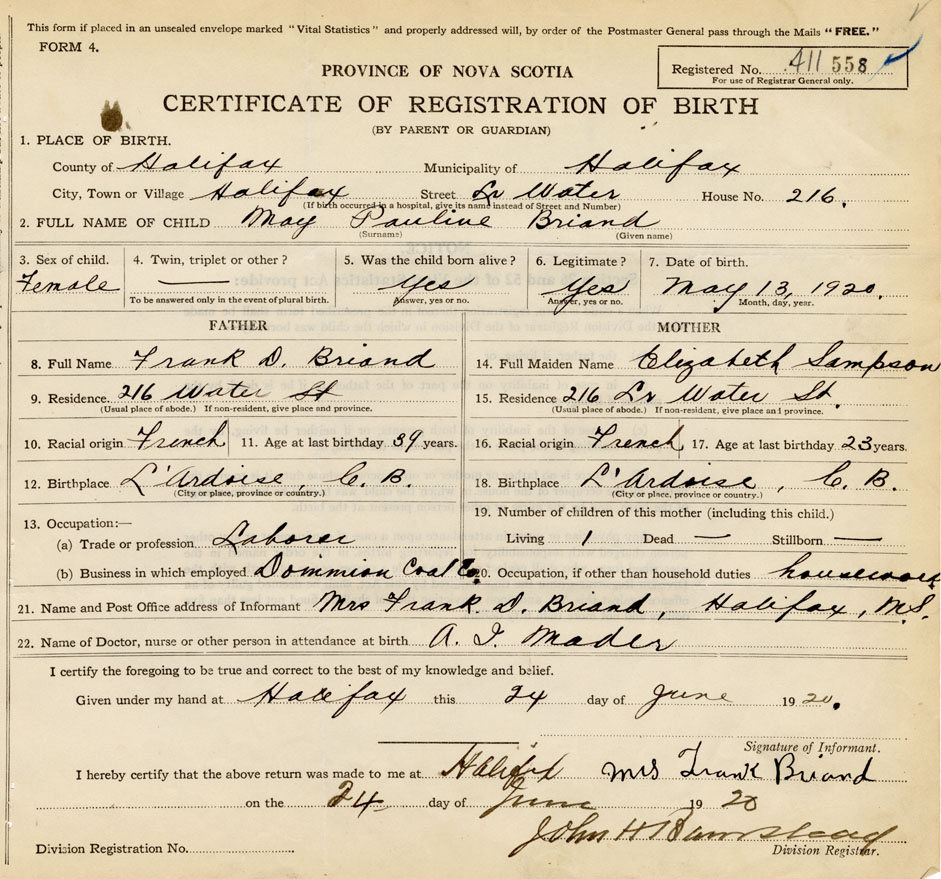 This form if placed in an unsealed envelope marked "Vital Statistics" and properly addressed will, by order of the Postmaster General pass through the Mails "FREE."
FORM 4.
Registered No. 411 558
For use of Registrar General only.
PROVINCE OF NOVA SCOTIA
CERTIFICATE OF REGISTRATION OF BIRTH
(BY PARENT OR GUARDIAN)
1. PLACE OF BIRTH.
County of Halifax Municipality of Halifax
City, Town or Village Halifax Street Lr Water House No. 216.
(If birth occurred in a hospital, give its name instead of Street and Number)
2. FULL NAME OF CHILD May Pauline Briand
(Surname) (Given name)
3. Sex of child. 4. Twin, triplet or other? 5. Was the child born alive? 6. Legitimate? 7. Date of birth.
Female — Yes Yes May 13, 1920.
To be answered only in the event of plural birth. Answer, yes or no. Answer, yes or no. Month, day, year.
FATHER
8. Full Name Frank D. Briand
9. Residence. 216 Water St
(Usual place of abode.) If non-resident, give place and province.
10. Racial origin French 11. Age at last birthday 39 years.
12. Birthplace L'Ardoise, C. B.
(City or place, province or country.)
13. Occupation:—
(a) Trade or profession Laborer
(b) Business in which employed Dominion Coal Co.
MOTHER
14. Full Maiden Name Elizabeth Sampson
15. Residence 216 Lr Water St.
(Usual place of abode.) If non-resident, give place and province.
16. Racial origin French 17. Age at last birthday 23 years.
18. Birthplace L'Ardoise, C. B.
(City or place, province or country.)
19. Number of children of this mother (including this child.)
Living 1 Dead — Stillborn —
20. Occupation, if other than household duties housework
21. Name and Post Office address of Informant Mrs Frank. D. Briand, Halifax, N.S.
22. Name of Doctor, nurse or other person in attendance at birth A. I. Mader
I certify the foregoing to be true and correct to the best of my knowledge and belief.
Given under my hand at Halifax this 24 day of June 1920.
Signature of Informant.
I hereby certify that the above return was made to me at Halifax Mrs Frank Briand
on the 24 day of June 1920
John H Barnstead
Division Registration No. Division Registrar.